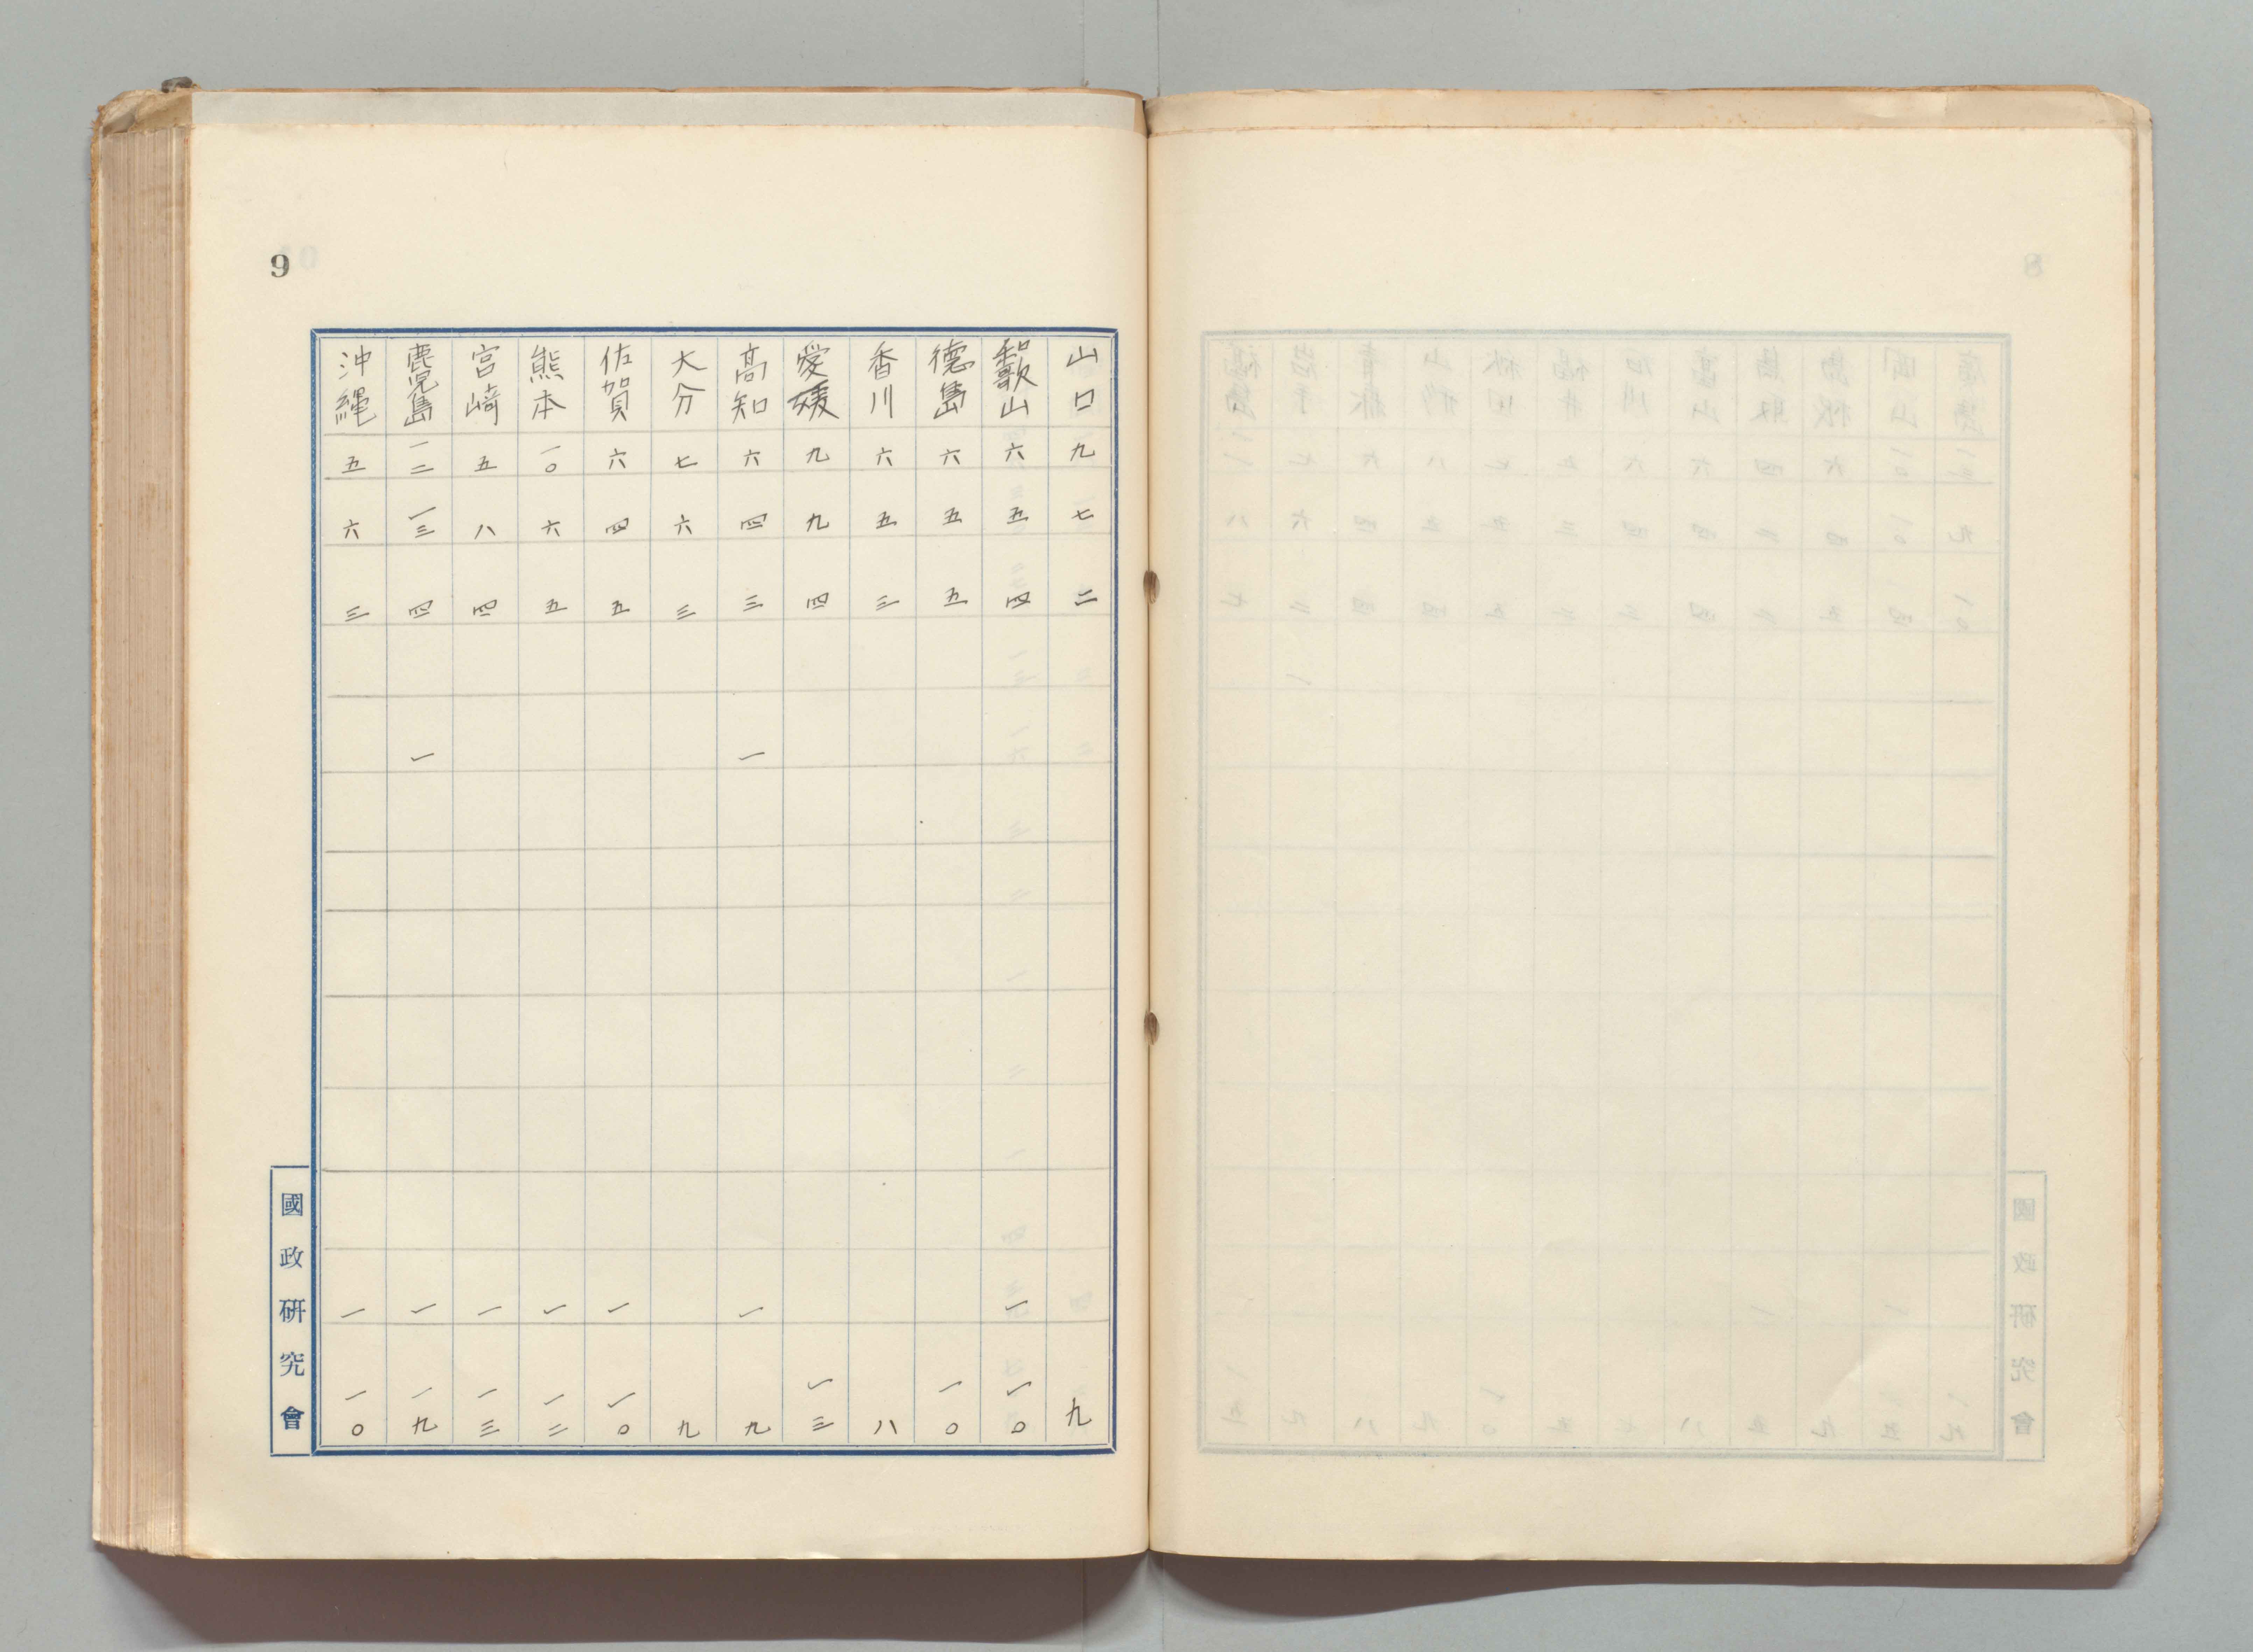 9
山口 九 七 二 九
和歌山 六 五 四 一 一〇
德島 六 五 五 一〇
香川 六 五 三 八
愛媛 九 九 四 一三
高知 六 四 三 一 一 九
大分 七 六 三 九
佐賀 六 四 五 一 一〇
熊本 一〇 六 五 一 一二
宮崎 五 八 四 一 一三
鹿児島 一二 一三 四 一 一 一九
沖縄 五 六 三 一 一〇
國政研究會